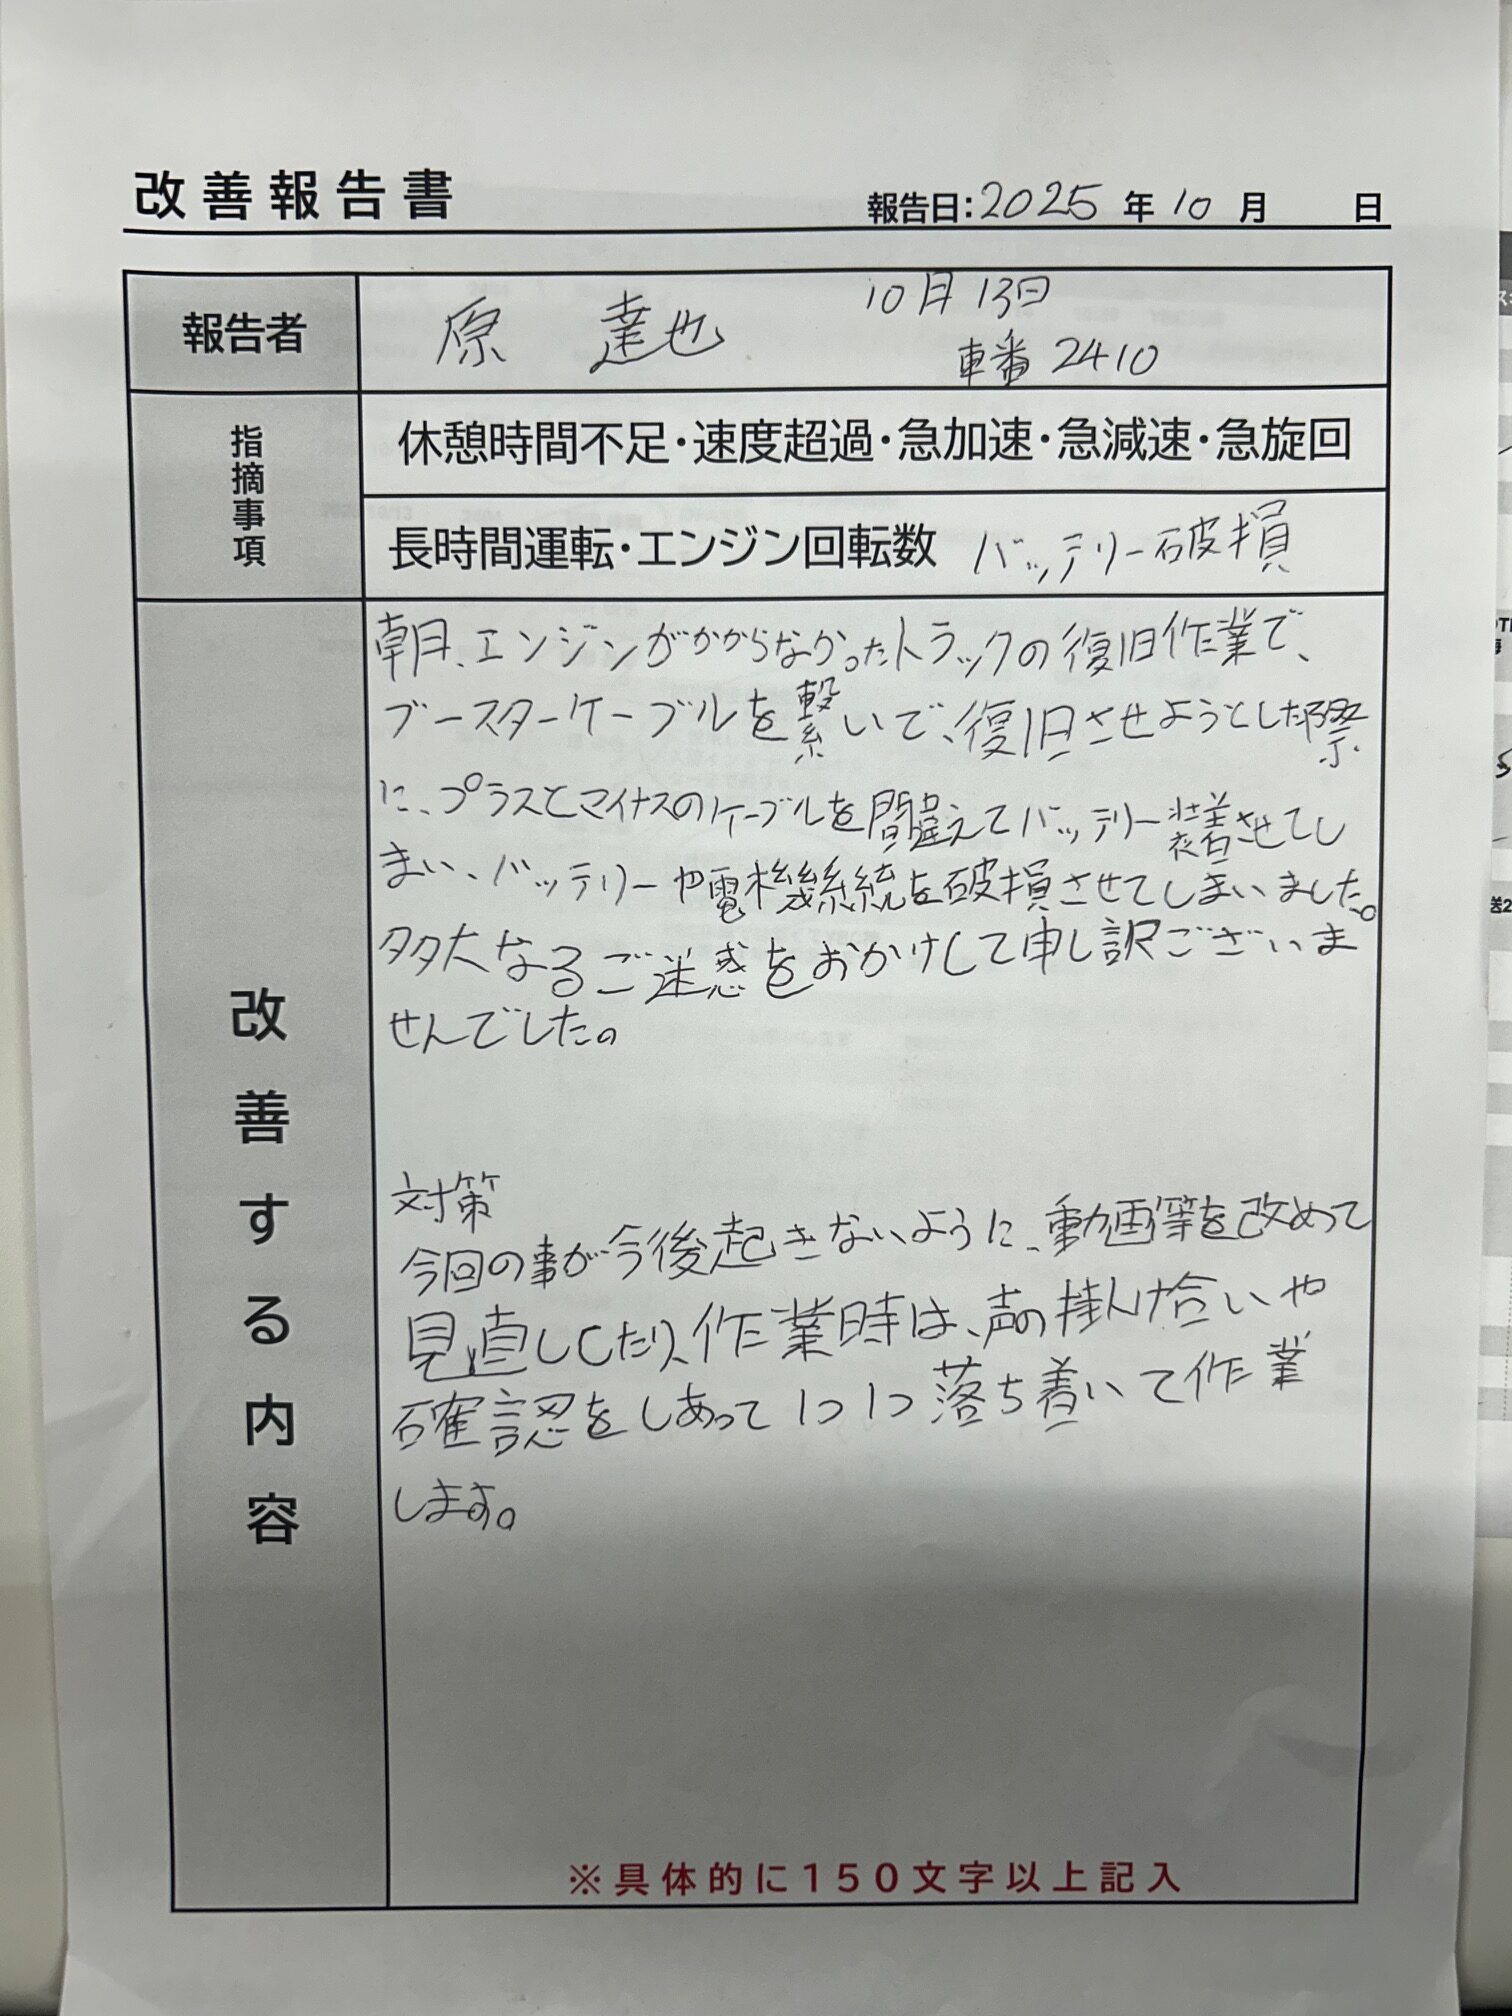 改善報告書
報告日:2025年10月 日
報告者
原 達也
10月13日
車番 2410
指摘事項
休憩時間不足・速度超過・急加速・急減速・急旋回
長時間運転・エンジン回転数 バッテリー破損
改善する内容
朝、エンジンがかからなかったトラックの復旧作業で、
ブースターケーブルを繋いで、復旧させようとした際
に、プラスとマイナスのケーブルを間違えてバッテリー装着させてし
まい、バッテリーや電機系統を破損させてしまいました。
多大なるご迷惑をおかけして申し訳ございま
せんでした。
対策
今回の事が今後起きないように、動画等を改めて
見直したり、作業時は、声の掛け合いや
確認をしあって1つ1つ落ち着いて作業
します。
※具体的に150文字以上記入